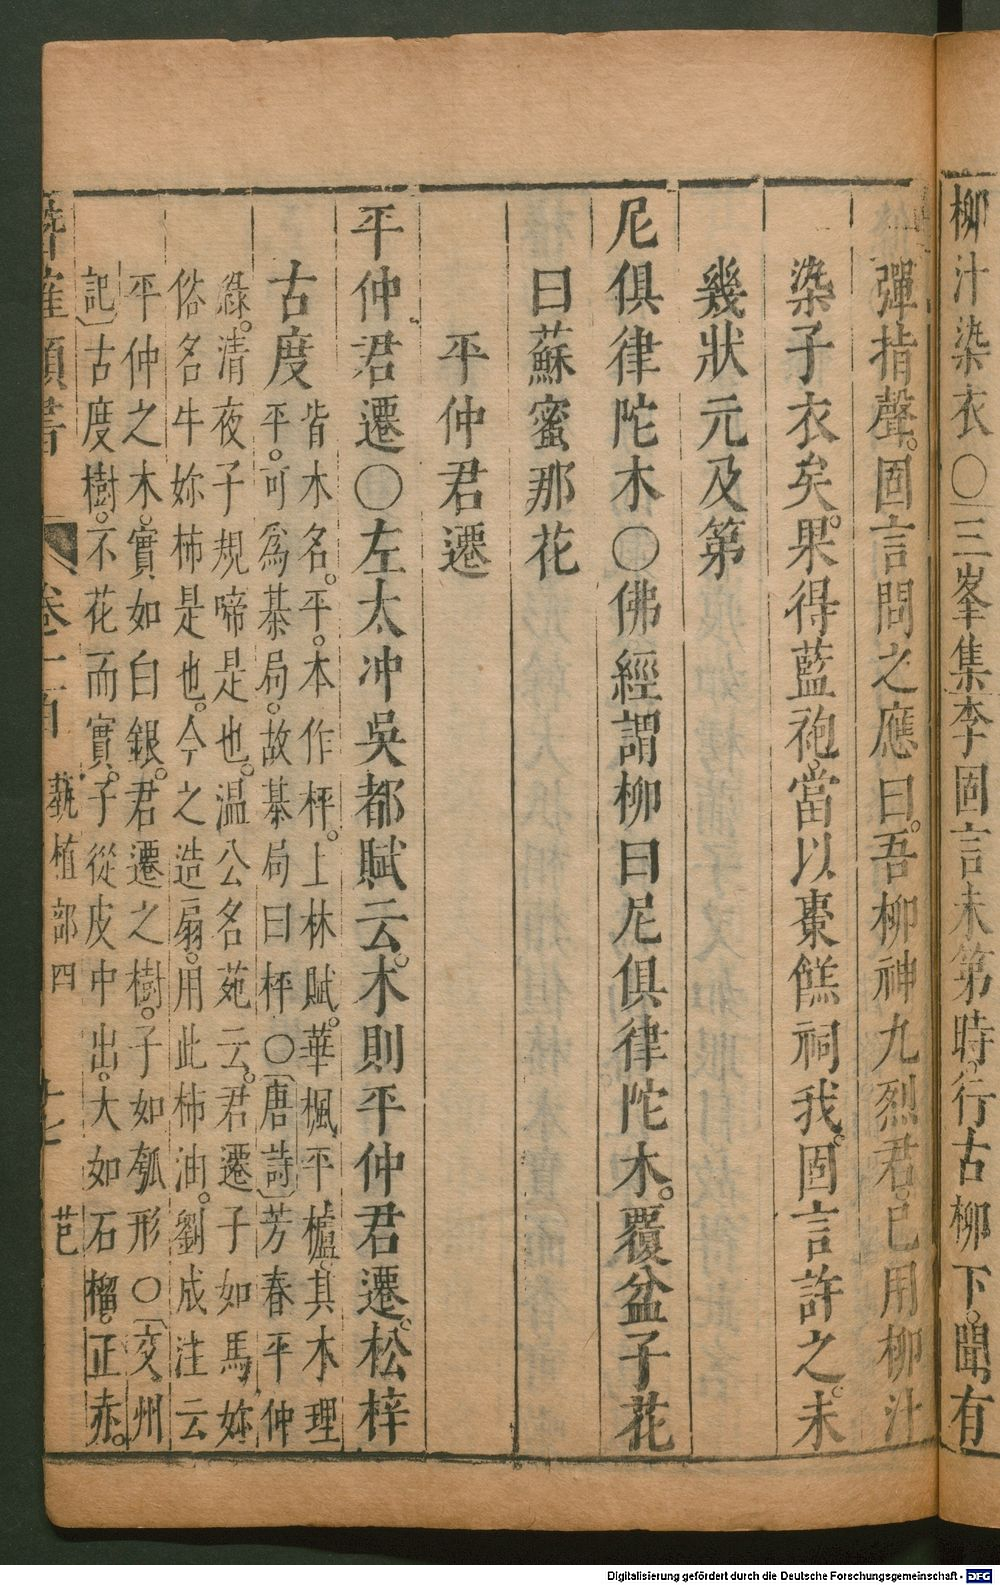 柳汁染衣〇三峯集李固言未第時。行古柳下。聞有
彈指聲。固言問之應曰。吾柳神九烈君。已用柳汁
染子衣矣。果得藍袍。當以棗餻祠我。固言許之。未
幾狀元及第
尼俱律陀木〇佛經謂柳曰尼俱律陀木。覆盆子花
曰蘇蜜那花
平仲君遷
平仲君遷〇左太冲吳都賦云。木則平仲君遷。松梓
古度
皆木名。平。本作枰。上林賦。華楓平櫨。其木理
平。可為棊局。故棊局曰枰〇〔唐詩〕芳春平仲
綠。清夜子規啼是也。温公名苑云。君遷子如馬妳
俗名牛妳柿是也。今之造扇。用此柿油。劉成注云
平仲之木。實如白銀。君遷之樹。子如瓠形〇〔交州
記〕古度樹。不花而實。子從皮中出。大如石榴。正赤。
潛確類書 卷一百 蓺植部四 十七 芑
Digitalisierung gefördert durch die Deutsche Forschungsgemeinschaft - DFG